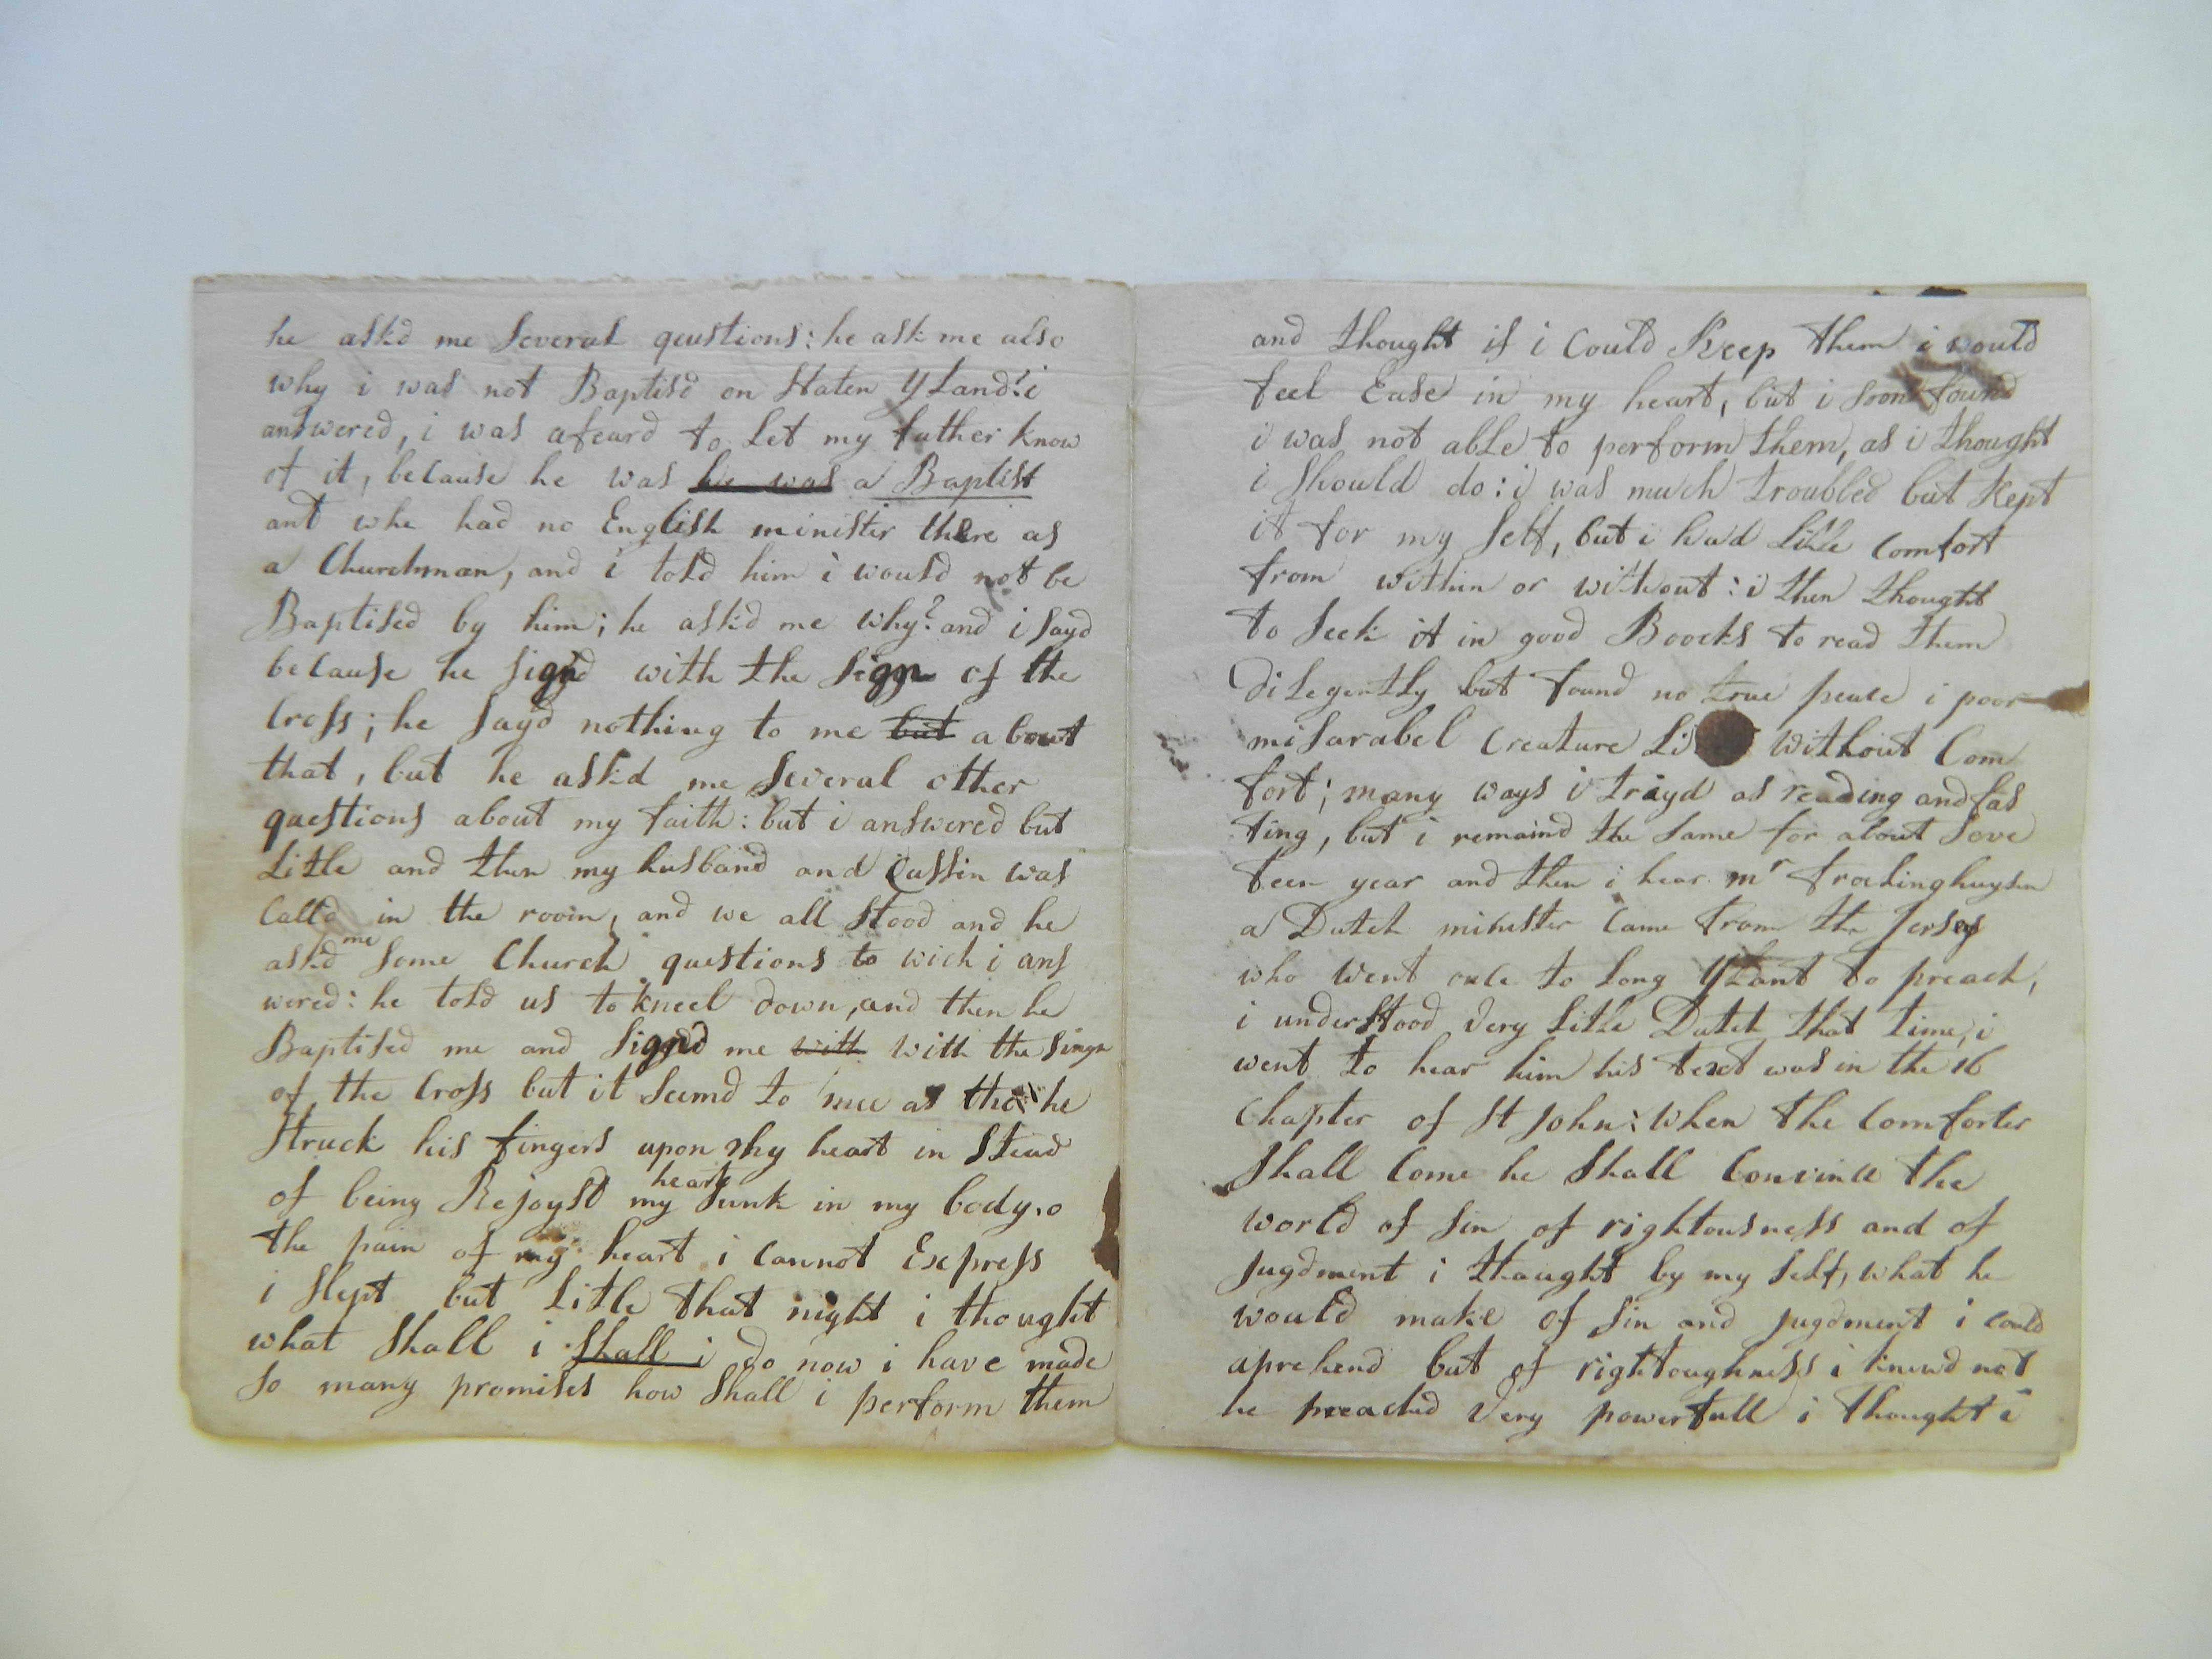 he ask'd me several qeustions: he ask me also
why i was not Baptis'd on Staten Yland? i
answered, i was afeard to Let my father know
of it, because he was he was a Baptist
ant whe had no English minister there as
a Churchman, and i told him i would not be
Baptised by him; he ask'd me why? and i sayd
because he sign'd with the sign of the
Cross; he sayd nothing to me but about
that, but he ask'd me several other
questions about my faith: but i answered but
Litle and then my husband and Cussin was
Call'd in the room, and we all stood and he
ask'd me some Church questions to wich i ans
wered: he told us to kneel down, and then he
Baptised me and sign'd me with with the singn
of the Cross but it seemd to mee as tho he
struck his fingers upon my heart in stead
of being Rejoyst my heart sunk in my body. o
the pain of my heart i cannot Express
i slept but Litle that night i thought
what shall i shall i do now i have made
so many promises how shall i perform them
and thought if i Could Keep them i would
feel Ease in my heart, but i soon found
i was not able to perform them, as i thought
i should do: i was much troubled but Kept
it for my self, but i had litle Comfort
from within or without: i then thought
to seek it in good Boocks to read them
diLegently but found no true peace i poor
misarabel Creature Li without Com
fort; many ways i trayd as reading and fas
ting, but i remaind the same for about seve
teen year and then i hear mr frælinghuysen
a Dutch minister Came from the Jersey
who went once to Long YLant to preach,
i understood Very Litle Dutch that time, i
went to hear him his text was in the 16
Chapter of St John: when the Comforter
shall Come he shall Convince the
world of sin of rightousness and of
jugdment i thaught by my self, what he
would make of sin and jugdment i could
aprehend but of rightoughness i knewd not
he preached Very powerfull i thought i